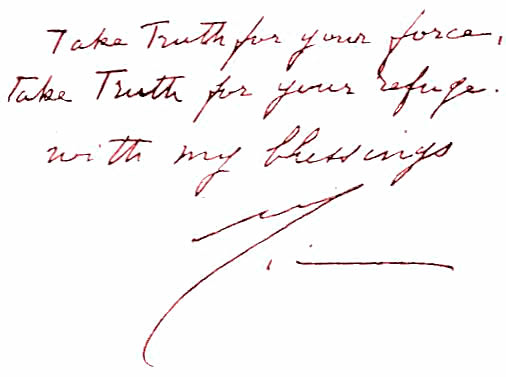 Take Truth for your force,
Take Truth for your refuge.
with my blessings